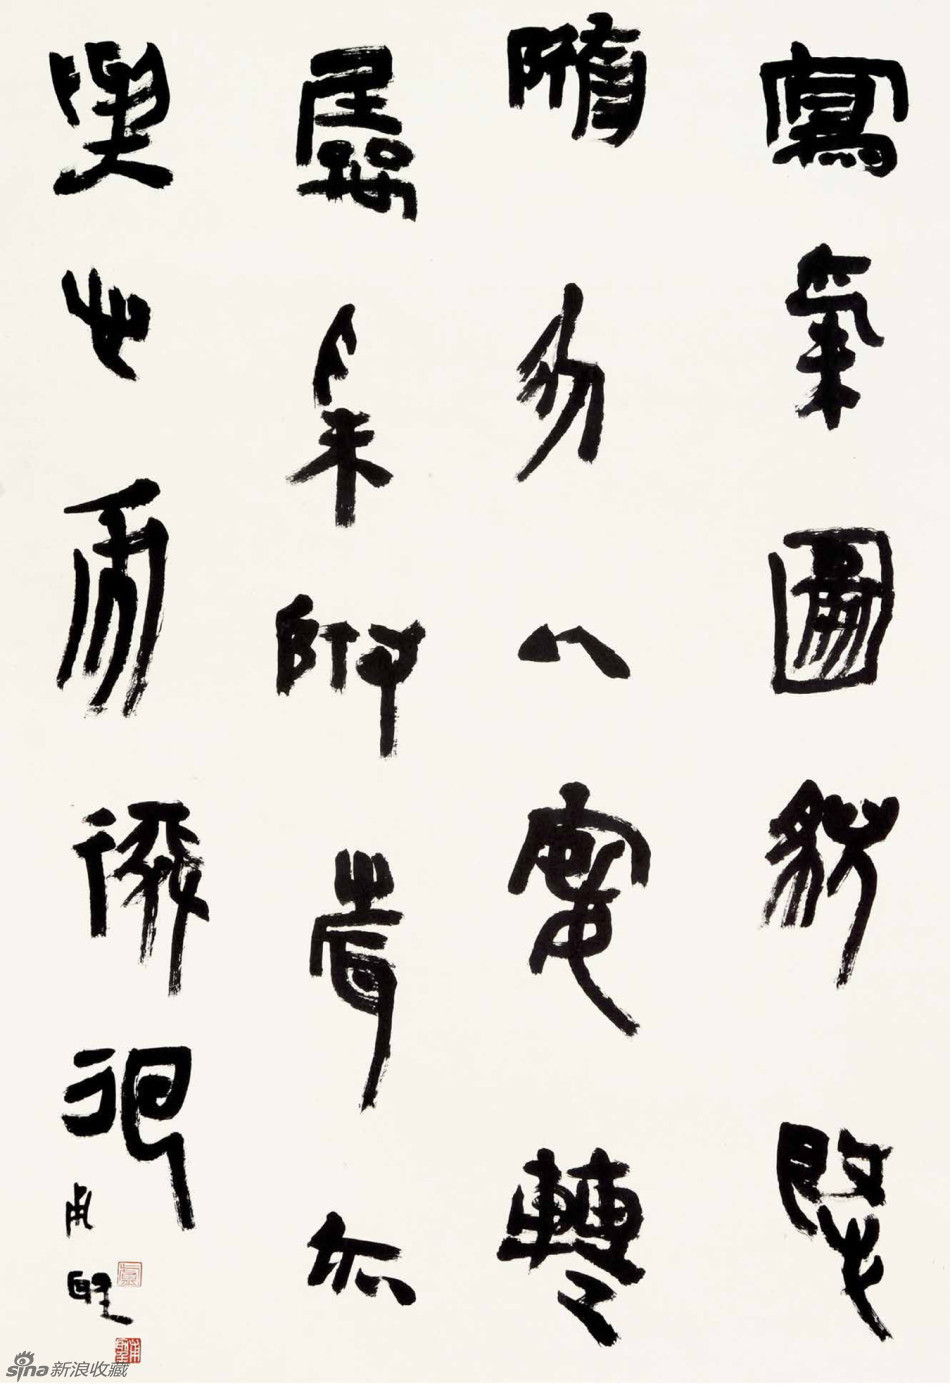 寫氣圖貌既
隨物以宛轉
屬采附聲亦
與心而徘徊
甫聖
sina新浪收藏